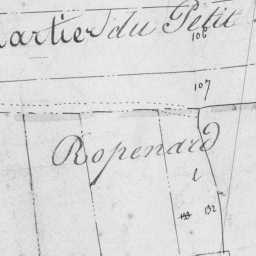 artier du Petit
106
107
Ropenard
132